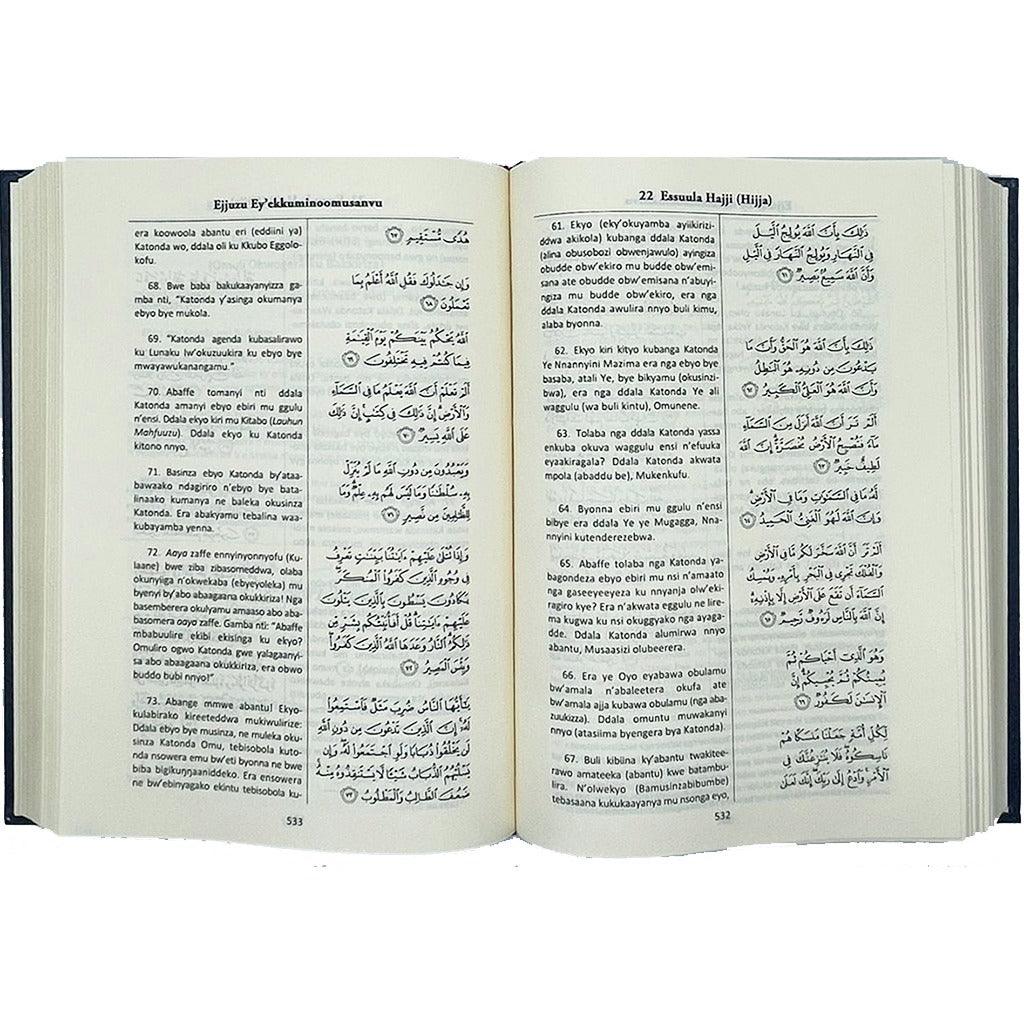 22 Essuula Hajji (Hijja)
61. Ekyo (eky'okuyamba ayiikirizi-
ddwa akikola) kubanga ddala Katonda
(alina obusobozi obwenjawulo) ayingiza
obudde obw'ekiro mu budde obw'emi-
sana ate obudde obw'emisana n'abuyi-
ngiza mu budde obw'ekiro, era nga
ddala Katonda awulira nnyo buli kimu,
alaba byonna.
62. Ekyo kiri kityo kubanga Katonda
Ye Nnannyini Mazima era nga ebyo bye
basaba, atali Ye, bye bikyamu (okusinzi-
bwa), era nga ddala Katonda Ye ali
waggulu (wa buli kintu), Omunene.
63. Tolaba nga ddala Katonda yassa
enkuba okuva waggulu ensi n'efuuka
eyaakiragala? Ddala Katonda akwata
mpola (abaddu be), Mukenkufu.
64. Byonna ebiri mu ggulu n'ensi
bibye era ddala Ye ye Mugagga, Nna-
nnyini kutenderezebwa.
65. Abaffe tolaba nga Katonda ya-
bagondeza ebyo ebiri mu nsi n'amaato
nga gaseeyeeyeza ku nnyanja olw'eki-
ragiro kye? Era n'akwata eggulu ne lire-
ma kugwa ku nsi okuggyako nga ayaga-
dde. Ddala Katonda alumirwa nnyo
abantu, Musaasizi olubeerera.
66. Era ye Oyo eyabawa obulamu
bw'amala n'abaleetera okufa ate
bw'amala ajja kubawa obulamu (nga aba-
zuukizza). Ddala omuntu muwakanyi
nnyo (atasiima byengera bya Katonda).
67. Buli kibiina ky'abantu twakitee-
rawo amateeka (abantu) kwe batambu-
lira. N'olwekyo (Bamusinzabibumbe)
tebasaana kukukaayanya mu nsonga eyo,
ذَٰلِكَ بِأَنَّ ٱللَّهَ يُولِجُ ٱلَّيْلَ
فِى ٱلنَّهَارِ وَيُولِجُ ٱلنَّهَارَ فِى ٱلَّيْلِ
وَأَنَّ ٱللَّهَ سَمِيعٌۢ بَصِيرٌ ٦١
ذَٰلِكَ بِأَنَّ ٱللَّهَ هُوَ ٱلْحَقُّ وَأَنَّ مَا
يَدْعُونَ مِن دُونِهِۦ هُوَ ٱلْبَٰطِلُ
وَأَنَّ ٱللَّهَ هُوَ ٱلْعَلِىُّ ٱلْكَبِيرُ ٦٢
أَلَمْ تَرَ أَنَّ ٱللَّهَ أَنزَلَ مِنَ ٱلسَّمَآءِ
مَآءً فَتُصْبِحُ ٱلْأَرْضُ مُخْضَرَّةً إِنَّ ٱللَّهَ
لَطِيفٌ خَبِيرٌ ٦٣
لَّهُۥ مَا فِى ٱلسَّمَٰوَٰتِ وَمَا فِى ٱلْأَرْضِ
وَإِنَّ ٱللَّهَ لَهُوَ ٱلْغَنِىُّ ٱلْحَمِيدُ ٦٤
أَلَمْ تَرَ أَنَّ ٱللَّهَ سَخَّرَ لَكُم مَّا فِى ٱلْأَرْضِ
وَٱلْفُلْكَ تَجْرِى فِى ٱلْبَحْرِ بِأَمْرِهِۦ وَيُمْسِكُ
ٱلسَّمَآءَ أَن تَقَعَ عَلَى ٱلْأَرْضِ إِلَّا بِإِذْنِهِۦٓ
إِنَّ ٱللَّهَ بِٱلنَّاسِ لَرَءُوفٌ رَّحِيمٌ ٦٥
وَهُوَ ٱلَّذِىٓ أَحْيَاكُمْ ثُمَّ
يُمِيتُكُمْ ثُمَّ يُحْيِيكُمْ إِنَّ
ٱلْإِنسَٰنَ لَكَفُورٌ ٦٦
لِّكُلِّ أُمَّةٍ جَعَلْنَا مَنسَكًا هُمْ
نَاسِكُوهُ فَلَا يُنَٰزِعُنَّكَ فِى
ٱلْأَمْرِ وَٱدْعُ إِلَىٰ رَبِّكَ إِنَّكَ لَعَلَىٰ
532
Ejjuzu Ey'ekkuminoomusanvu
era koowoola abantu eri (eddiini ya)
Katonda wo, ddala oli ku Kkubo Eggolo-
kofu.
68. Bwe baba bakukaayanyizza ga-
mba nti, "Katonda y'asinga okumanya
ebyo bye mukola.
69. "Katonda agenda kubasalirawo
ku Lunaku lw'okuzuukira ku ebyo bye
mwayawukanangamu."
70. Abaffe tomanyi nti ddala
Katonda amanyi ebyo ebiri mu ggulu
n'ensi. Ddala ekyo kiri mu Kitabo (Lauhun
Mahfuuzu). Ddala ekyo ku Katonda
kitono nnyo.
71. Basinza ebyo Katonda by'ataa-
bawaako ndagiriro n'ebyo bye bata-
linaako kumanya ne baleka okusinza
Katonda. Era abakyamu tebalina waa-
kubayamba yenna.
72. Aaya zaffe ennyinyonnyofu (Ku-
laane) bwe ziba zibasomeddwa, olaba
okunyiiga n'okwekaba (ebyeyoleka) mu
byenyi by'abo abaagaana okukkiriza! Nga
basemberera okulyamu amaaso abo aba-
basomera aaya zaffe. Gamba nti: "Abaffe
mbabuulire ekibi ekisinga ku ekyo?
Omuliro ogwo Katonda gwe yalagaanyi-
sa abo abaagaana okukkiriza, era obwo
buddo bubi nnyo!"
73. Abange mmwe abantu! Ekyo-
kulabirako kireeteddwa mukiwulirize:
Ddala ebyo bye musinza, ne muleka oku-
sinza Katonda Omu, tebisobola kuto-
nda nsowera emu bw'eti byonna ne bwe
biba bigikuŋŋaaniddeko. Era ensowera
ne bw'ebinyagako ekintu tebisobola ku-
هُدًى مُّسْتَقِيمٍ ٦٧
وَإِن جَٰدَلُوكَ فَقُلِ ٱللَّهُ أَعْلَمُ بِمَا
تَعْمَلُونَ ٦٨
ٱللَّهُ يَحْكُمُ بَيْنَكُمْ يَوْمَ ٱلْقِيَٰمَةِ
فِيمَا كُنتُمْ فِيهِ تَخْتَلِفُونَ ٦٩
أَلَمْ تَعْلَمْ أَنَّ ٱللَّهَ يَعْلَمُ مَا فِى ٱلسَّمَآءِ
وَٱلْأَرْضِ إِنَّ ذَٰلِكَ فِى كِتَٰبٍ إِنَّ ذَٰلِكَ
عَلَى ٱللَّهِ يَسِيرٌ ٧٠
وَيَعْبُدُونَ مِن دُونِ ٱللَّهِ مَا لَمْ يُنَزِّلْ
بِهِۦ سُلْطَٰنًا وَمَا لَيْسَ لَهُم بِهِۦ عِلْمٌ وَمَا
لِلظَّٰلِمِينَ مِن نَّصِيرٍ ٧١
وَإِذَا تُتْلَىٰ عَلَيْهِمْ ءَايَٰتُنَا بَيِّنَٰتٍ تَعْرِفُ
فِى وُجُوهِ ٱلَّذِينَ كَفَرُوا۟ ٱلْمُنكَرَ
يَكَادُونَ يَسْطُونَ بِٱلَّذِينَ يَتْلُونَ
عَلَيْهِمْ ءَايَٰتِنَا قُلْ أَفَأُنَبِّئُكُم بِشَرٍّ مِّن
ذَٰلِكُمُ ٱلنَّارُ وَعَدَهَا ٱللَّهُ ٱلَّذِينَ كَفَرُوا۟
وَبِئْسَ ٱلْمَصِيرُ ٧٢
يَٰٓأَيُّهَا ٱلنَّاسُ ضُرِبَ مَثَلٌ فَٱسْتَمِعُوا۟
لَهُۥٓ إِنَّ ٱلَّذِينَ تَدْعُونَ مِن دُونِ ٱللَّهِ
لَن يَخْلُقُوا۟ ذُبَابًا وَلَوِ ٱجْتَمَعُوا۟ لَهُۥ وَإِن
يَسْلُبْهُمُ ٱلذُّبَابُ شَيْـًٔا لَّا يَسْتَنقِذُوهُ مِنْهُ
ضَعُفَ ٱلطَّالِبُ وَٱلْمَطْلُوبُ ٧٣
533